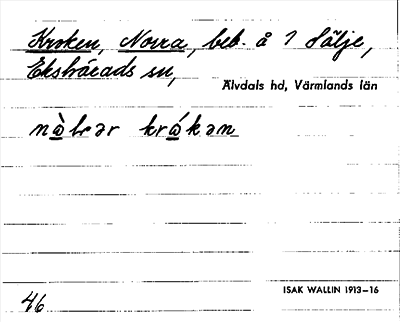 Kroken, Norra, beb. å 1 Sälje,
Ekshärads sn,
Älvdals hd, Värmlands län
kråkən
ISAK WALLIN 1913–16
46